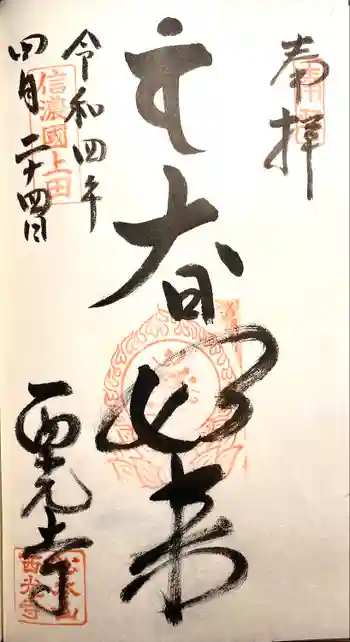 奉拝
大日如来
令和四年
四月二十四日
信濃國上田
西光寺